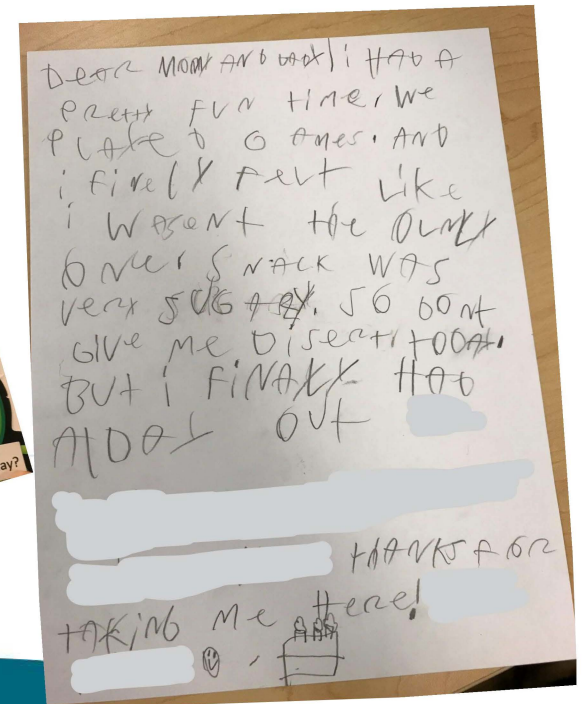 Dear MOMY AND DADY i HAD A
PRetty FUN time, We
PLAYeD GAmes. AND
i finely FeLt Like
i WASeNt the OUNLY
ONe. SNACK WAS
veRY SUGARY. SO DONt
GIVe Me DISeRt tODAY.
BUt i FiNALLY HAD
A DAY OUt
tHANKS FOR
tAKiNG Me HeRe!
ay?